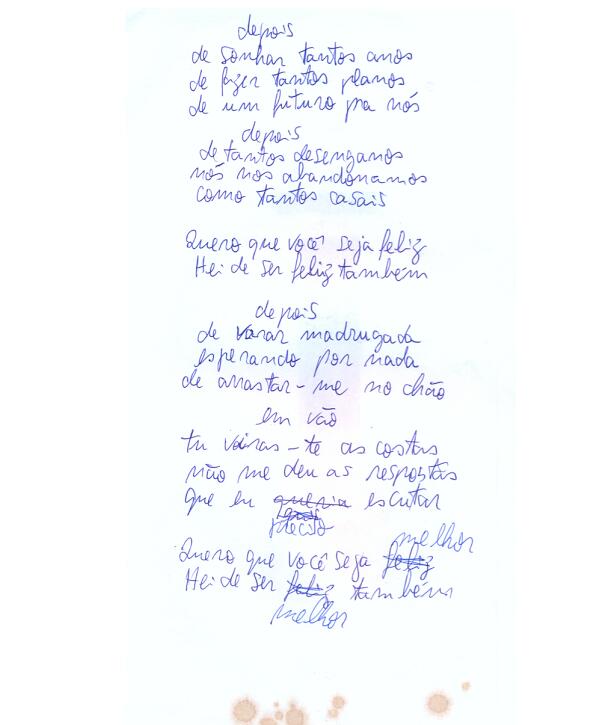 depois
de sonhar tantos anos
de fazer tantos planos
de um futuro pra nós
depois
de tantos desenganos
nós nos abandonamos
como tantos casais
Quero que você seja feliz
Hei de ser feliz também
depois
de varar madrugada
esperando por nada
de arrastar-me no chão
em vão
tu viras-te as costas
não me deu as respostas
que eu queria escutar
preciso
melhor
Quero que você seja feliz
Hei de ser feliz também
melhor